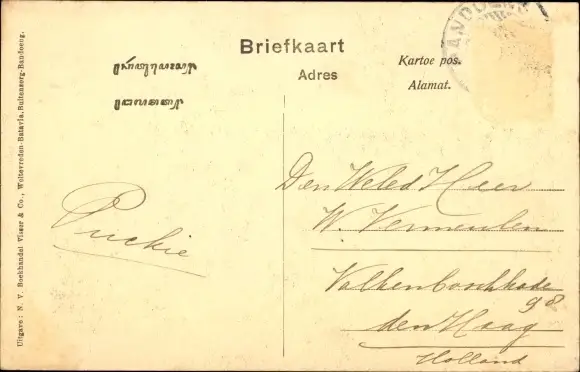 Briefkaart
Adres
Kartoe pos.
Alamat.
BANDOENG
Den Weled Heer
W. Vermeulen
Valkenboschkade
98
den Haag
Holland
Puckie
Uitgave: N. V. Boekhandel Visser & Co., Weltevreden-Batavia, Buitenzorg-Bandoeng.